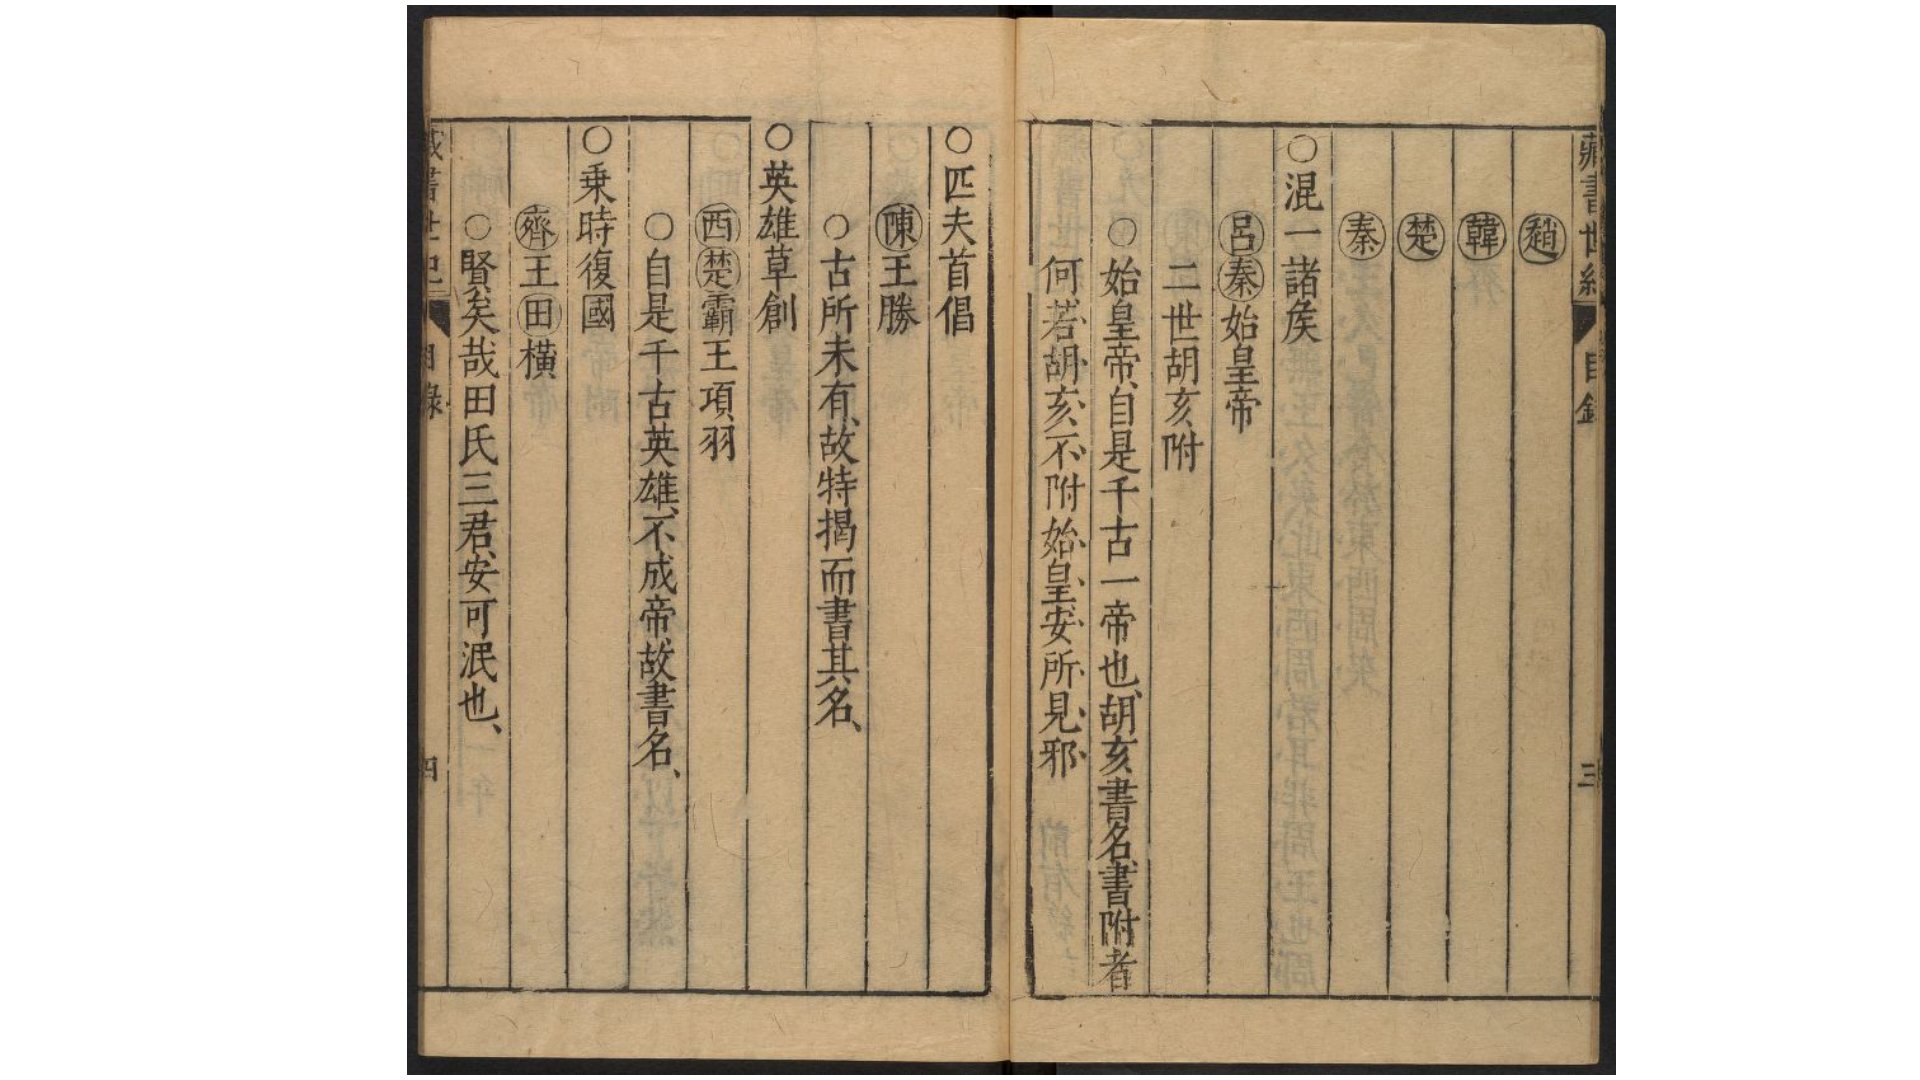 藏書世紀 目錄 三
趙
韓
楚
秦
○混一諸矦
呂秦始皇帝
二世胡亥附
○始皇帝、自是千古一帝也、胡亥書名、書附者
何若、胡亥、不附始皇、安所見邪
○匹夫首倡
陳王勝
○古所未有、故特揭而書其名、
○英雄草創
西楚霸王項羽
○自是千古英雄、不成帝、故書名、
○乗時復國
齊王田橫
○賢矣哉田氏三君、安可泯也、
藏書世紀 目錄 四